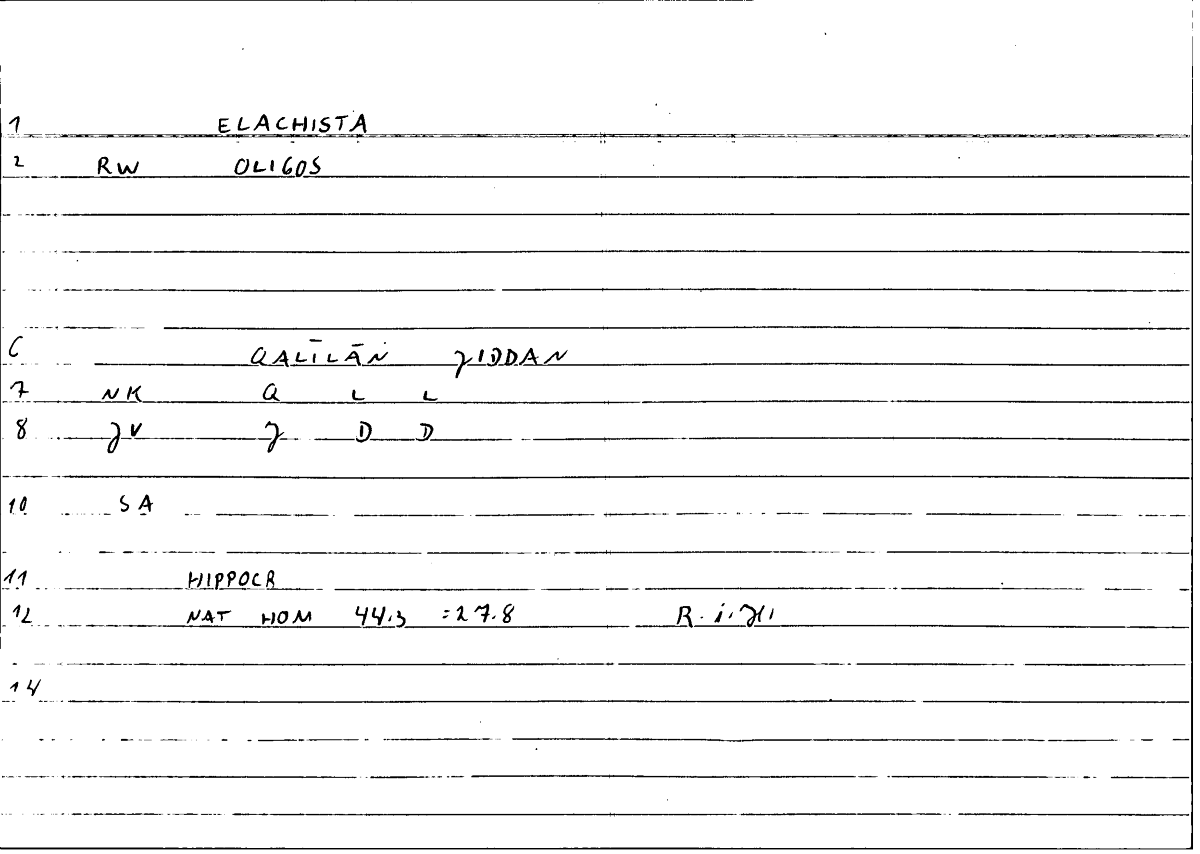 1 ELACHISTA
2 RW OLIGOS
6 QALĪLĀN ƷIDDAN
7 NK Q L L
8 ƷV Ʒ D D
10 SA
11 HIPPOCR
12 NAT HOM 44.3 =27.8
14